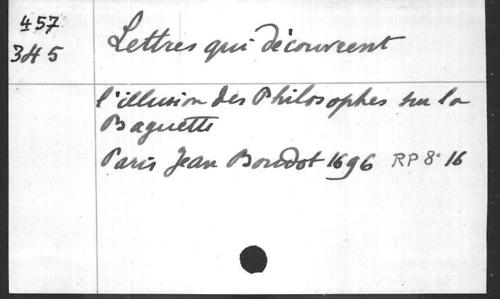 457
345
Lettres qui découvrent
l'illusion des Philosophes sur la
Baguette
Paris Jean Boudot 1696 RP 8° 16